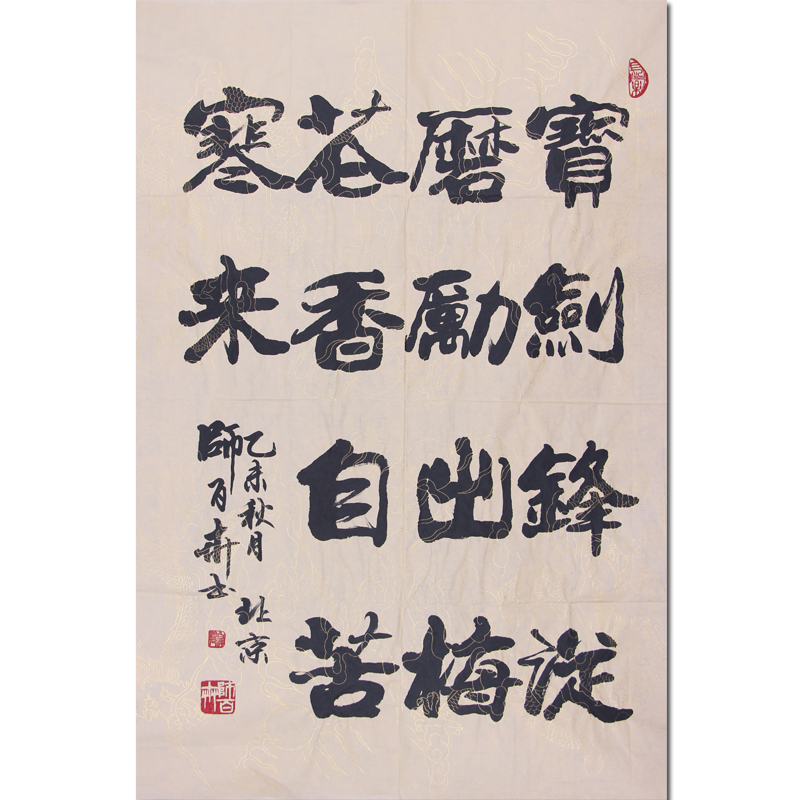 寶劍鋒從
磨勵出梅
花香自苦
寒来
乙未秋月北京
師百卉书